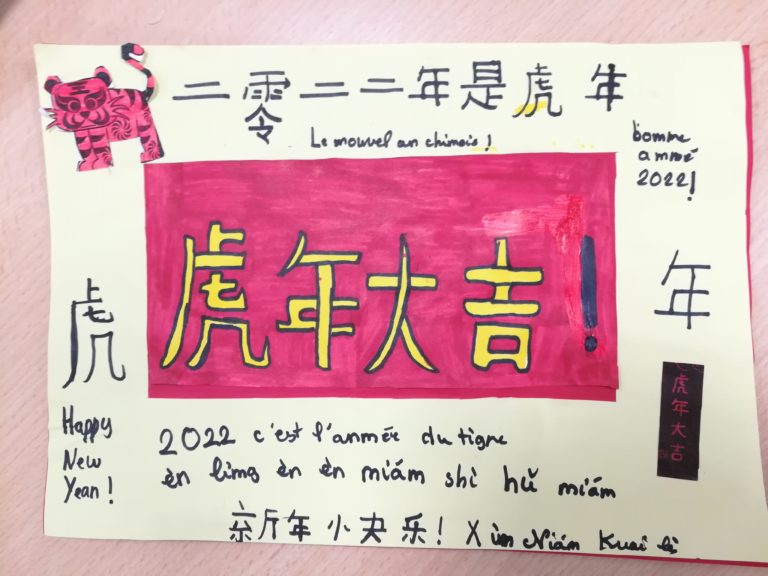 二零二二年是虎年
Le nouvel an chinois !
bonne
année
2022!
虎年大吉!
虎
年
虎年大吉
Happy
New
Year!
2022 c'est l'année du tigre
èn ling èn èn mián shì hǔ mián
新年快乐! Xin Nián Kuai lè